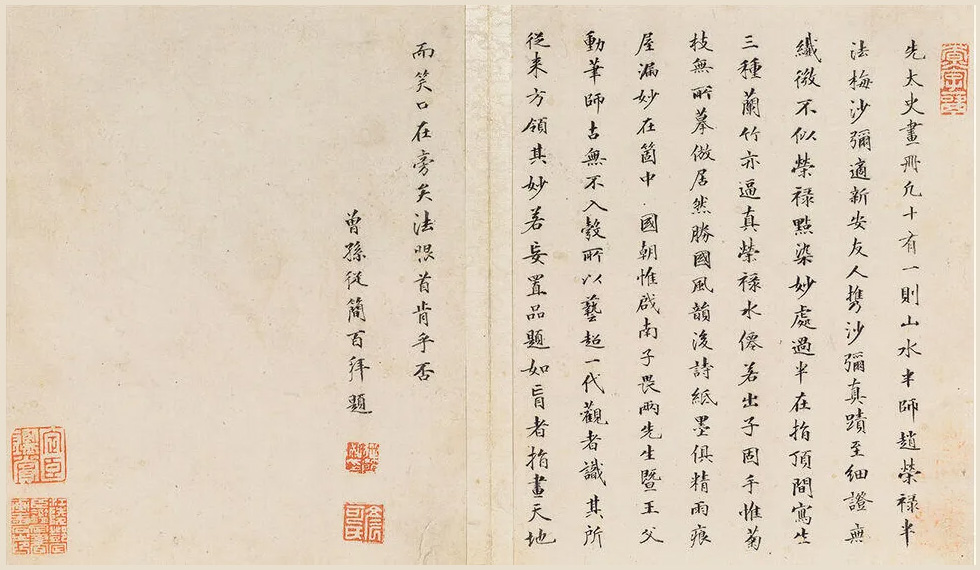 先太史畫冊凡十有一則山水半師趙榮祿半
法梅沙彌適新安友人攜沙彌真蹟至細證無
纖微不似榮祿點染妙處過半在指頂間寫生
三種蘭竹亦逼真榮祿水僊若出子固手惟菊
枝無所摹倣居然勝國風韻後詩紙墨俱精雨痕
屋漏妙在箇中 國朝惟啟南子畏兩先生暨王父
動筆師古無不入彀所以藝超一代觀者識其所
從來方領其妙若妄置品題如盲者指畫天地
而笑口在旁矣法眼首肯乎否
曾孫從簡百拜題